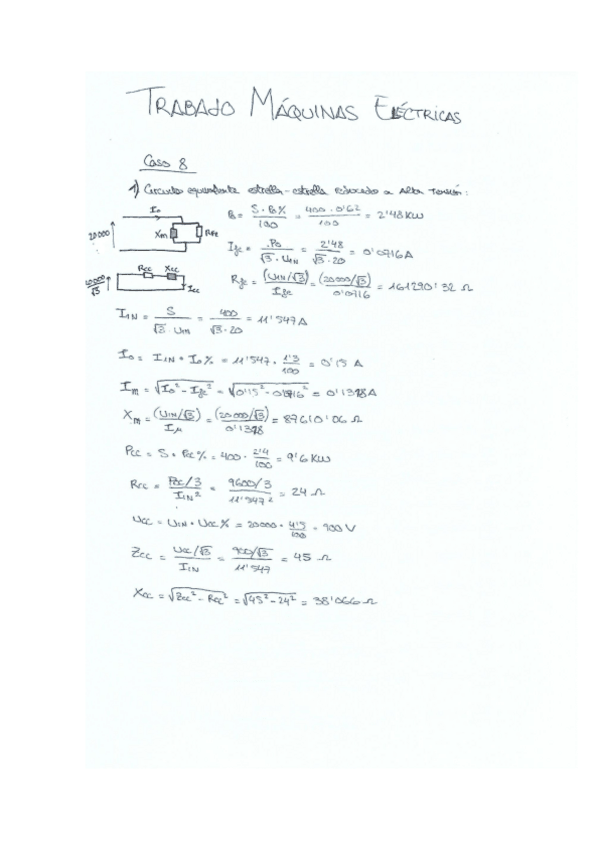 TRABAJO MÁQUINAS ELÉCTRICAS
Caso 8
1) Circuito equivalente estrella-estrella reducido a Alta Tensión:
I₀
20000
Xm
Rfe
P₀ = S·P₀%/100 = 400·0'62/100 = 2'48 KW
Ife = P₀/√3·U₁N = 2'48/√3·20 = 0'0716 A
Rcc Xcc
20000/√3
Icc
Rfe = (U₁N/√3)/Ife = (20000/√3)/0'0716 = 161290'32 Ω
I₁N = S/√3·U₁N = 400/√3·20 = 11'547 A
I₀ = I₁N · I₀% = 11'547 · 1'3/100 = 0'15 A
Im = √I₀² - Ife² = √0'15² - 0'0716² = 0'1318 A
Xm = (U₁N/√3)/Iμ = (20000/√3)/0'1318 = 87610'06 Ω
Pcc = S · Pcc% = 400 · 2'4/100 = 9'6 KW
Rcc = Pcc/3/I₁N² = 9600/3/11'547² = 24 Ω
Ucc = U₁N · Ucc% = 20000 · 4'5/100 = 900 V
Zcc = Ucc/√3/I₁N = 900/√3/11'547 = 45 Ω
Xcc = √Zcc² - Rcc² = √45² - 24² = 38'066 Ω